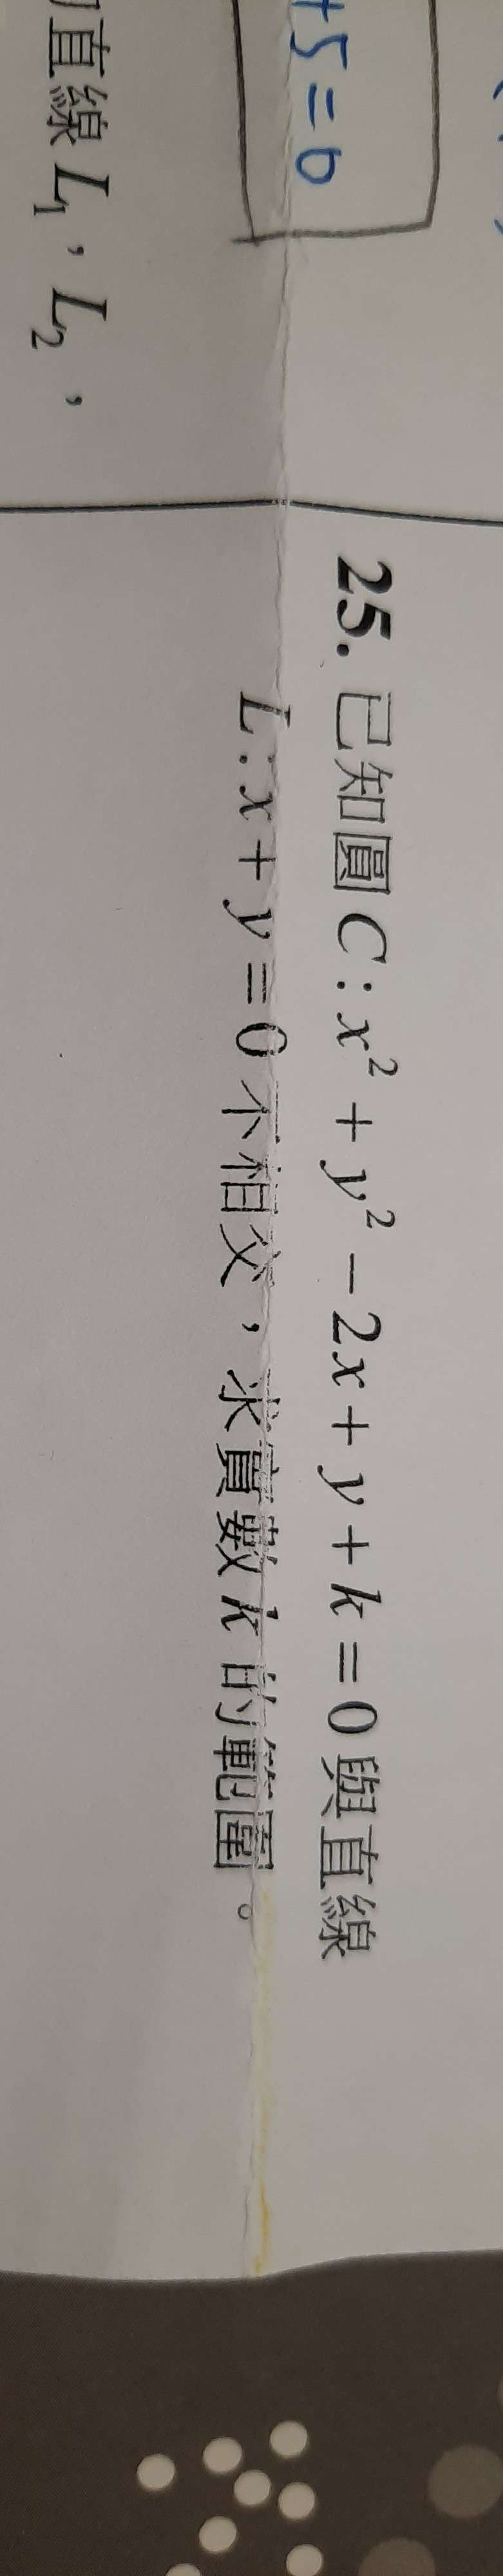 +5=0
直線 L₁，L₂，
25. 已知圓 C : x² + y² − 2x + y + k = 0 與直線
L : x + y = 0 不相交，求實數 k 的範圍。